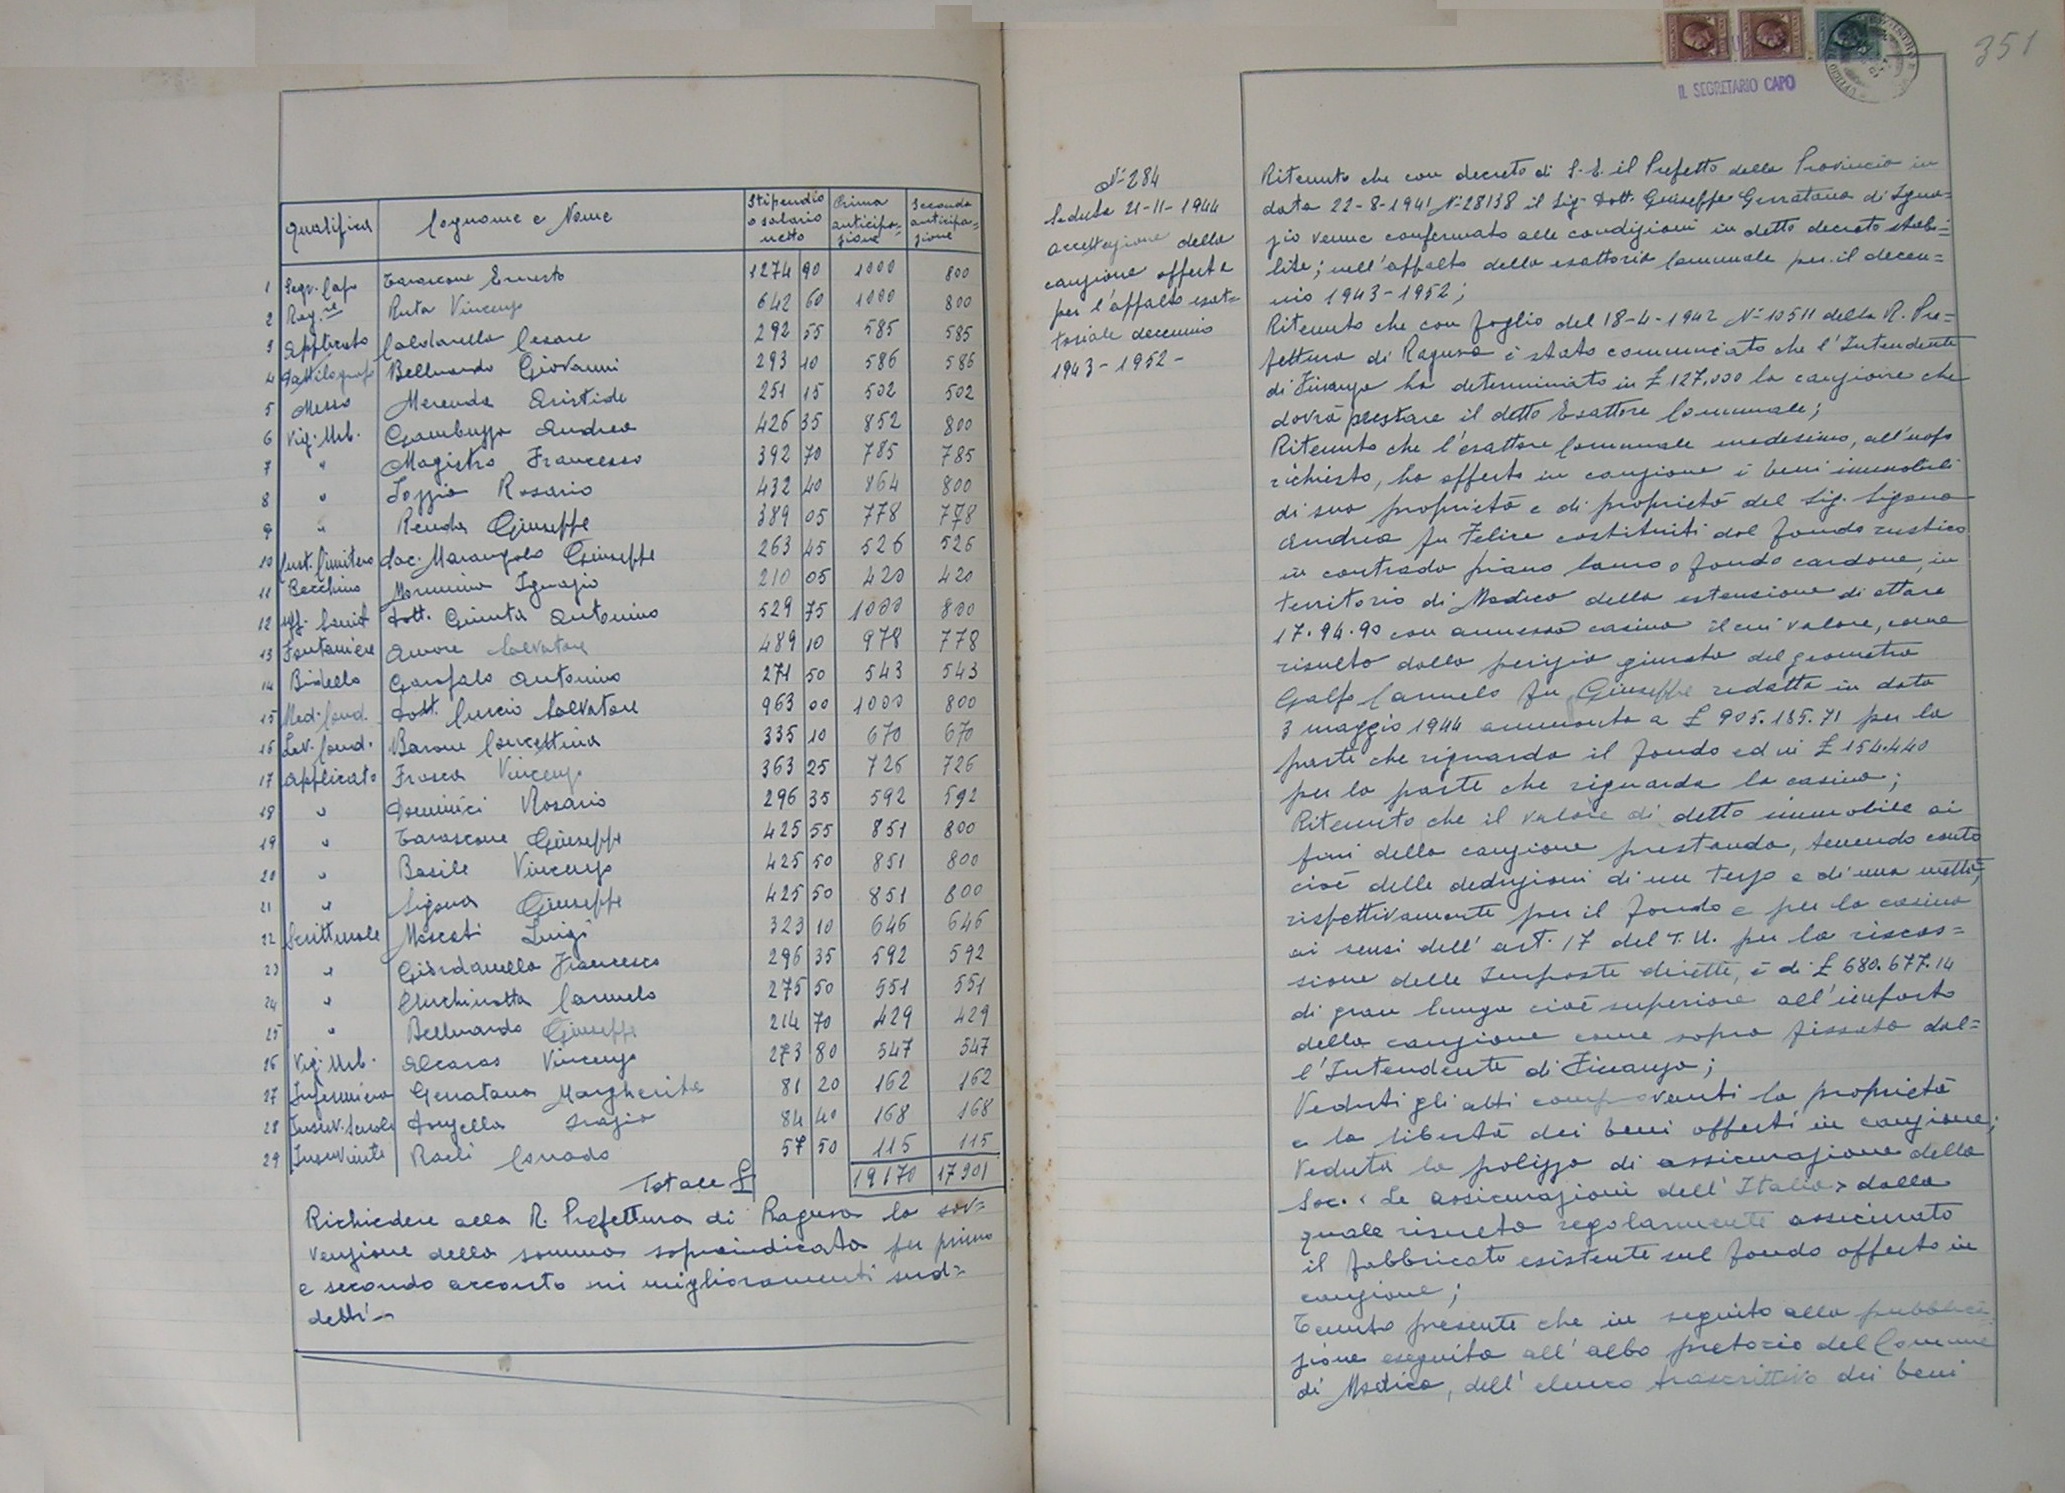 Qualifica Cognome e Nome Stipendio o salario netto Prima anticipa=zione Seconda anticipa=zione
1 Segr. Capo Tarascone Ernesto 1274 90 1000 800
2 Rag.re Ruta Vincenzo 642 60 1000 800
3 Applicato Caldarella Cesare 292 55 585 585
4 Dattilografo Belluardo Giovanni 293 10 586 586
5 Messo Merenda Aristide 251 15 502 502
6 Vig. Urb. Gambuzza Andrea 426 35 852 800
7 " Magistro Francesco 392 70 785 785
8 " Iozzia Rosario 432 40 864 800
9 " Renda Giuseppe 389 05 778 778
10 Cust. Cimitero Sac. Marangolo Giuseppe 263 45 526 526
11 Becchino Mormina Ignazio 210 05 420 420
12 Uff. Sanit. Dott. Giunta Antonino 529 75 1000 800
13 Fontaniere Amore Salvatore 489 10 978 778
14 Bidello Garofalo Antonino 271 50 543 543
15 Med. Cond. Dott. Curcio Salvatore 963 00 1000 800
16 Lev. Cond. Barone Concettina 335 10 670 670
17 Applicato Frasca Vincenzo 363 25 726 726
18 " Dominici Rosario 296 35 592 592
19 " Tarascone Giuseppe 425 55 851 800
20 " Basile Vincenzo 425 50 851 800
21 " Sigona Giuseppe 425 50 851 800
22 Scritturale Moscati Luigi 323 10 646 646
23 " Giordanella Francesco 296 35 592 592
24 " Carmelo 275 50 551 551
25 " Belluardo Giuseppe 214 70 429 429
26 Vig. Urb. Alcaras Vincenzo 273 80 547 547
27 Infermiera Gerratana Margherita 81 20 162 162
28 Inserv. Scuole 84 40 168 168
29 Inserviente Raeli Corrado 57 50 115 115
Totale £ 19170 17901
Richiedere alla R. Prefettura di Ragusa la sov=
venzione della somma sopraindicata per primo
e secondo acconto sui miglioramenti sud=
detti.-
351
IL SEGRETARIO CAPO
N= 284
Seduta 21-11-1944
accettazione della
cauzione offerta
per l'appalto esat=
toriale decennio
1943-1952-
Ritenuto che con decreto di S.E. il Prefetto della Provincia in
data 22-8-1941 N=28138 il Sig. Dott. Giuseppe Gerratana di Igna=
zio venne confermato alle condizioni in detto decreto stabi=
lite; nell'appalto della esattoria Comunale per il decen=
nio 1943-1952;
Ritenuto che con foglio del 18-4-1942 N=10511 della R. Pre=
fettura di Ragusa è stato comunicato che l'Intendente
di Finanza ha determinato in £ 127.000 la cauzione che
dovrà prestare il detto Esattore Comunale;
Ritenuto che l'esattore Comunale medesimo, all'uopo
richiesto, ha offerto in cauzione i beni immobili
di sua proprietà e di proprietà del Sig. Sigona
Andrea fu Felice costituiti dal fondo rustico
in contrada piano lauro o fondo cardone, in
territorio di Modica della estensione di ettare
17.94.90 con annesso casino il cui valore, come
risulta dalla perizia giurata del geometra
Galfo Carmelo fu Giuseppe redatta in data
3 maggio 1944 ammonta a £ 905.185.71 per la
parte che riguarda il fondo ed in £ 154.440
per la parte che riguarda la casina;
Ritenuto che il valore di detto immobile ai
fini della cauzione prestanda, tenendo conto
cioè delle deduzioni di un terzo e di una metà,
rispettivamente per il fondo e per la casina
ai sensi dell'art. 17 del T.U. per la riscos=
sione delle Imposte dirette, è di £ 680.677.14
di gran lunga cioè superiore all'importo
della cauzione come sopra fissata dal=
l'Intendente di Finanza;
Veduti gli atti comprovanti la proprietà
e la libertà dei beni offerti in cauzione;
Veduta la polizza di assicurazione della
Soc. "Le assicurazioni dell'Italia" dalla
quale risulta regolarmente assicurato
il fabbricato esistente sul fondo offerto in
cauzione;
Tenuto presente che in seguito alla pubblica
zione eseguita all'albo pretorio del Comune
di Modica, dell'elenco trascrittivo dei beni